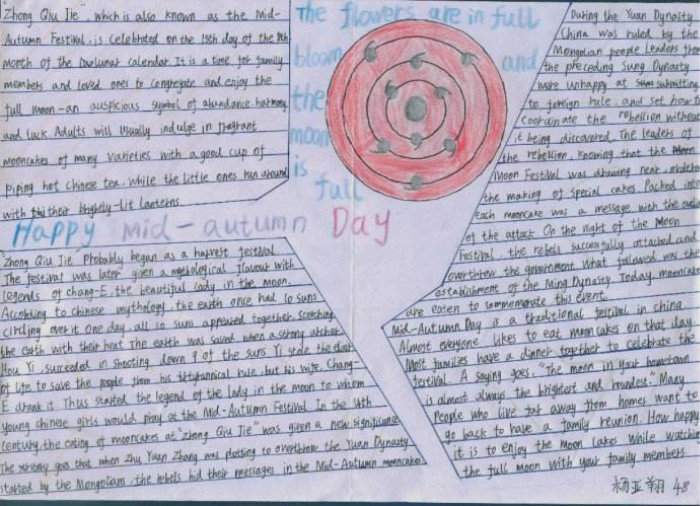 "Zhong Qiu Jie", which is also known as the Mid-
Autumn Festival, is celebrated on the 15th day of the 8th
month of the lunar calendar. It is a time for family
members and loved ones to congregate and enjoy the
full moon-an auspicious symbol of abundance harmony
and luck. Adults will usually indulge in fragrant
mooncakes of many varieties with a good cup of
piping hot chinese tea, while the little ones run around
with their brightly-lit lanterns.
The flowers are in full
bloom and
the
moon
is
full
Happy mid-autumn Day
Zhong Qiu Jie Probably began as a harvest festival
The festival was later given a mythological flavour with
legends of chang-E, the beautiful lady in the moon.
According to chinese mythology, the earth once had 10 suns
circling over it one day, all 10 suns appeared together, scorching
the earth with their heat The earth was saved when a strong archer
Hou Yi, succeeded in shooting down 9 of the suns Yi stole the
of life to save the people from his rule, but his wife, Chang-
E drank it. Thus started the legend of the lady in the moon to whom
young chinese girls would pray at the Mid-Autumn Festival In the 14th
century, the eating of mooncakes at "zhong Qiu Jie" was given a new significance
The goes that when Zhu Yuan Zhang was plotting to overthrow the Yuan Dynasty
started by the Mongolians, the rebels hid their messages in the Mid-Autumn mooncakes
During the Yuan Dynasty
China was ruled by the
Mongolian people Leaders from
the preceding Sung Dynasty
were unhappy at submitting
to foreign rule, and set how to
coordinate the rebellion without
it being discovered. The leaders of
the rebellion, knowing that the Moon
Moon Festival was drawing near,
the making of special cakes. Packed into
each mooncake was a message with the
of the attack On the night of the Moon
Festival, the rebels successfully attached and
overthrew the government What followed was the
establishment of the Ming Dynasty Today, mooncakes
are eaten to commemorate this event.
Mid-Autumn Day is a traditional festival in china.
Almost everyone likes to eat mooncakes on that day.
Most families have a dinner together to celebrate the
festival. A saying goes, "The moon in your hometown
is almost always the brightest and roundest." Many
People who live far away from homes want to
go back to have a family reunion. How happy
it is to enjoy the Moon Cakes while watching
the full moon with your family members.
杨亚翔 48